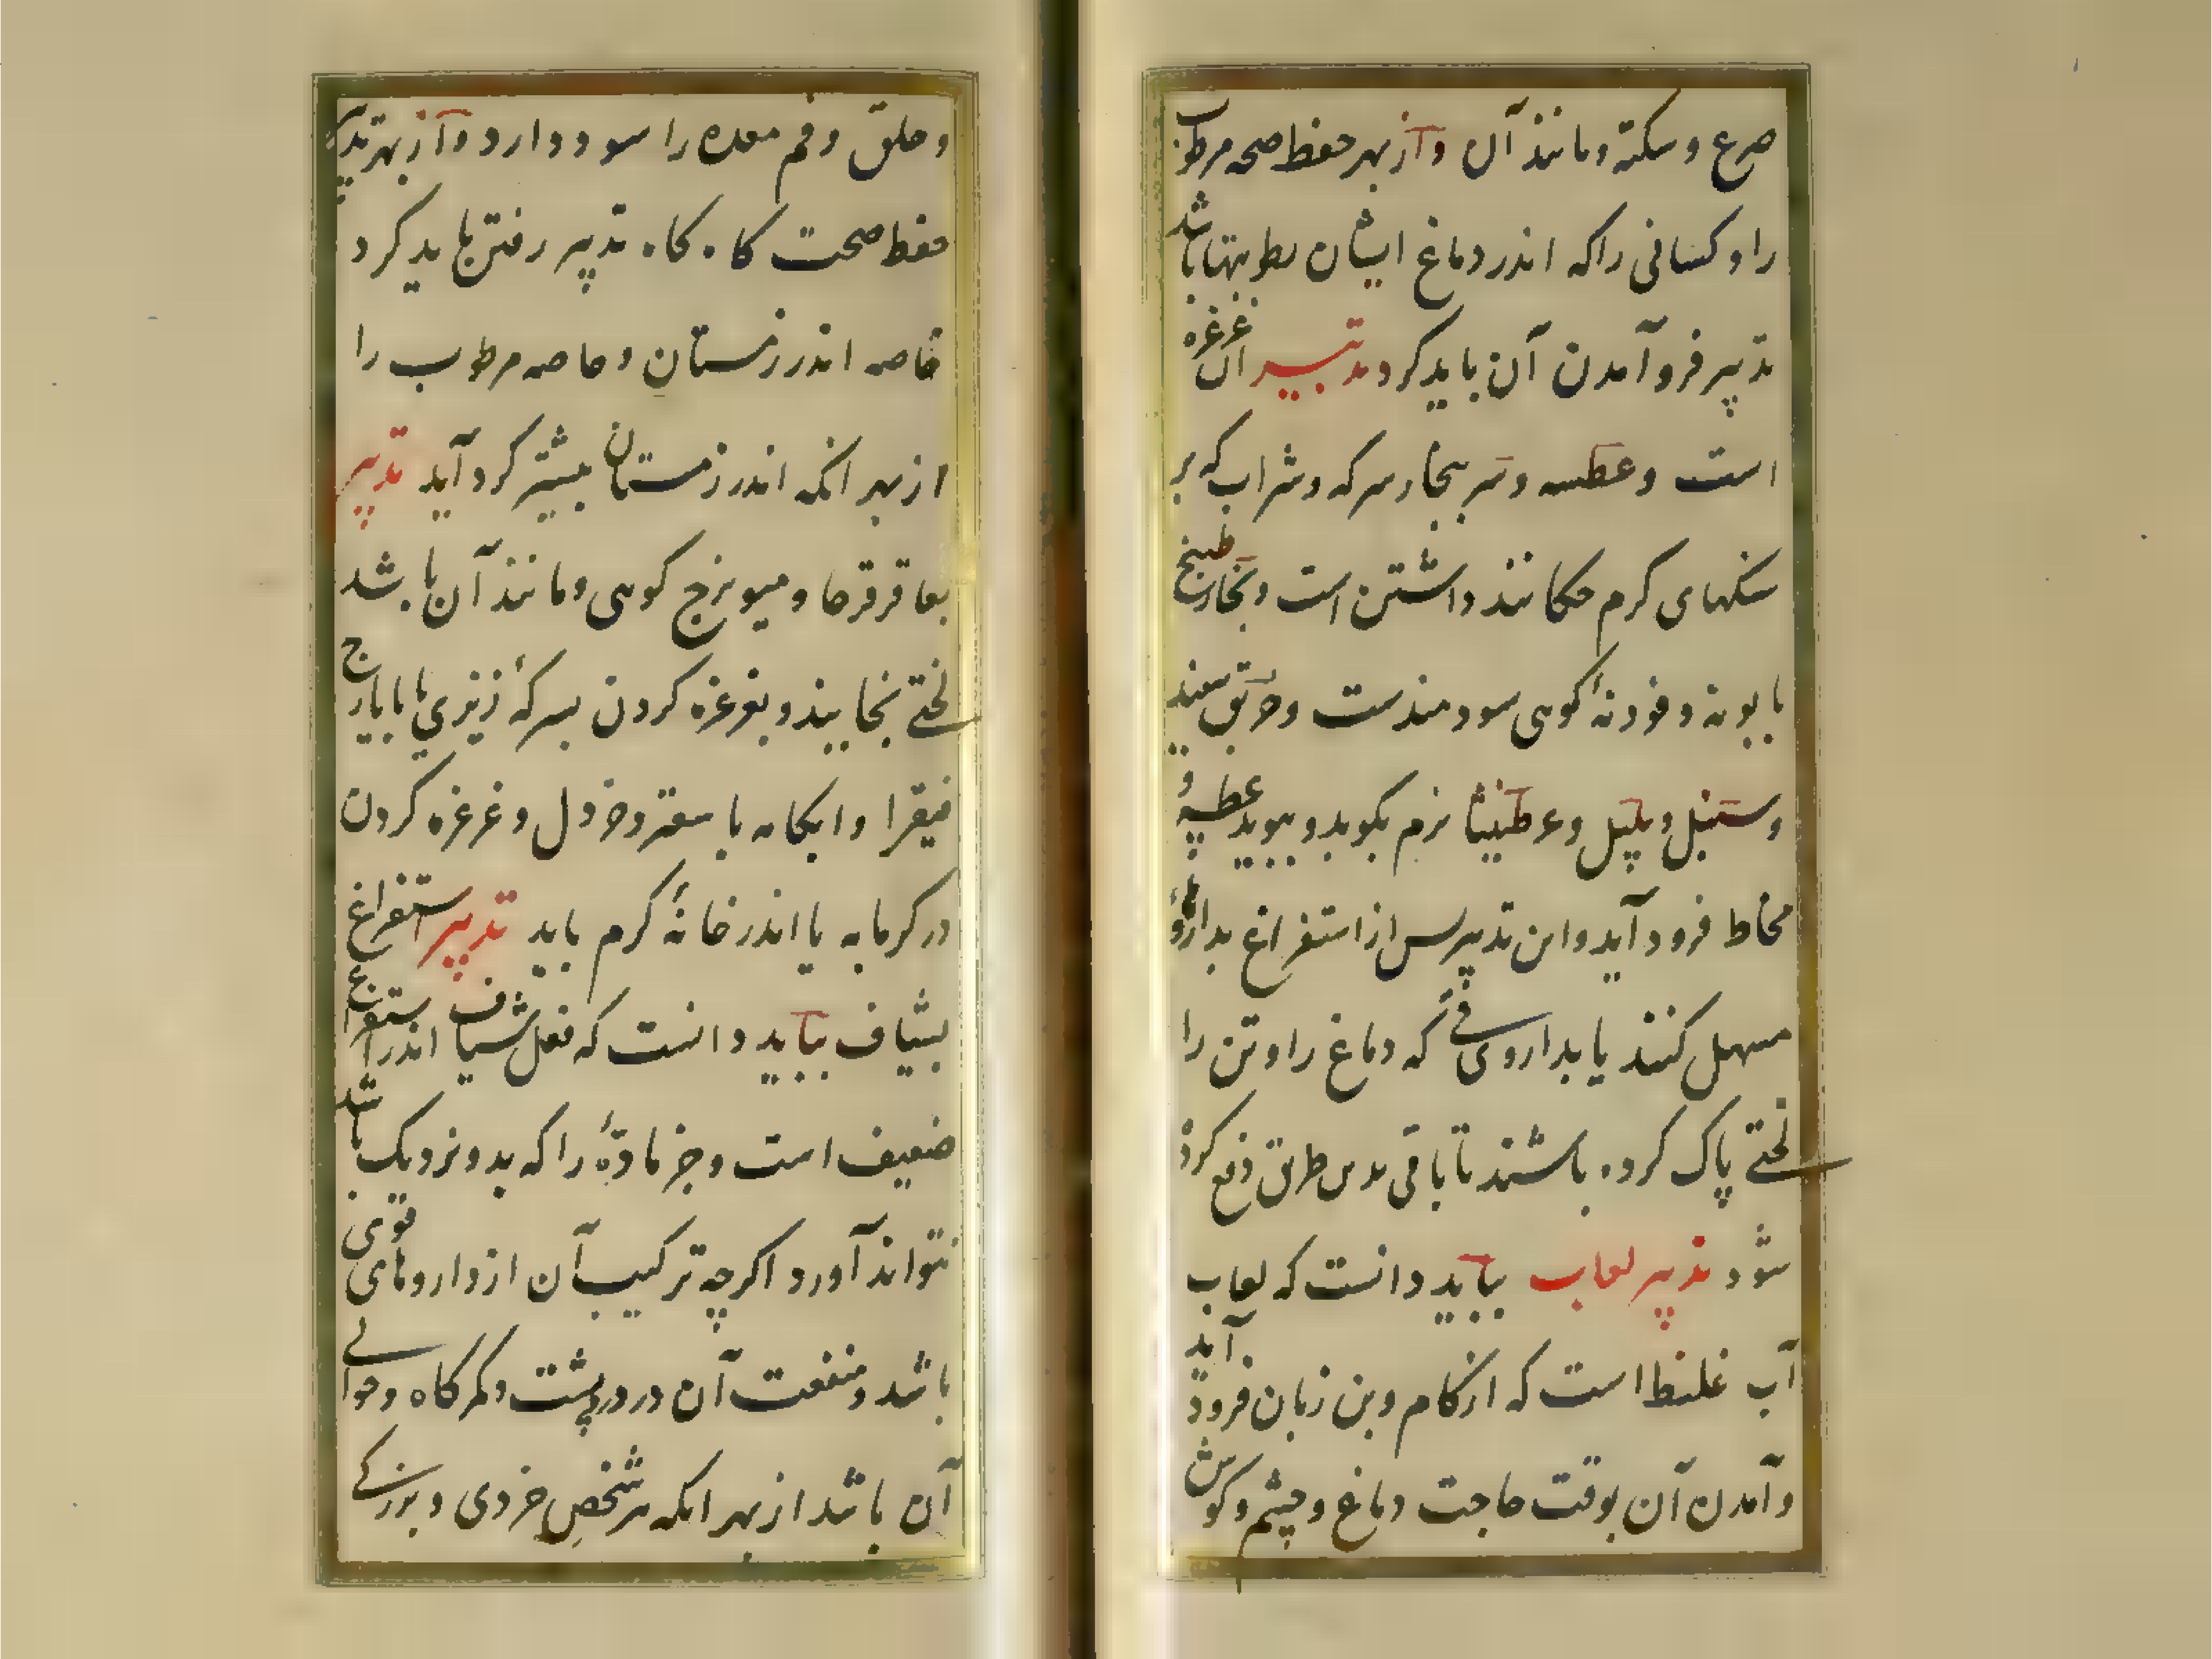 صرع و سکته و مانند آن و از بهر حفظ صحه مرطوب
را و کسانی را که اندر دماغ ایشان رطوبتها باشد
تدبیر فرو آمدن آن باید کرد و تدبیر آن غرغره
است و عطسه و سر ببخار سرکه و شراب که بر
سنکهای کرم چکانند داشتن است و بخار طبیخ
بابونه و فودنهٔ کوهی سودمندست و خربق سفید
و سنبل و پلپل و عرطنیثا نرم بکوبد و ببوید عطسه و
مخاط فرود آید و این تدبیر پس از استفراغ بداروء
مسهل کنند یا بداروی قی که دماغ را و تن را
لختی پاک کرده باشند تا باقی بدین طریق دفع کرده
شود تدبیر لعاب بباید دانست که لعاب
آب غلیظ است که از کام و بن زبان فرود آید
و آمدن آن بوقت حاجت دماغ و چشم و کوش
و حلق و فم معده را سود دارد و از بهر تدبیر
حفظ صحت کاه کاه تدبیر رفتن باید کرد
خاصه اندر زمستان و خاصه مرطوب را
از بهر انکه اندر زمستان بیشتر کرد آید تدبیر
بعاقرقرحا و میویزج کوهی و مانند آن باشد
لختی بخایند و بغرغره کردن بسرکهٔ زیزی یا بایارج
فیقرا و ابکامه با سعتر و خردل و غرغره کردن
در کرمابه یا اندر خانهٔ کرم باید تدبیر استفراغ
بشیاف بباید دانست که فعل شیاف اندر استفراغ
ضعیف است و جز مادهٔ را که بدو نزدیک باشد
نتواند آورد اکرچه ترکیب آن از داروهای قوی
باشد و منفعت آن در درد پشت و کمرکاه و حوالی
آن باشد از بهر انکه هر شخص خردی و بزرکی